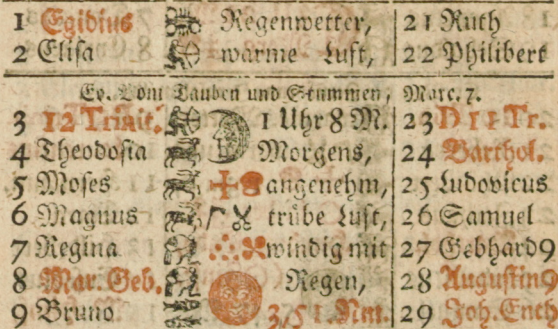 1 Egidius Regenwetter, 21 Ruth
2 Elisa warme Luft, 22 Philibert
Ev. Vom Tauben und Stummen, Marc. 7.
3 12 Trinit. 1 Uhr 8 M. 23 D 11 Tr.
4 Theodosia Morgens, 24 Barthol.
5 Moses angenehm, 25 Ludovicus
6 Magnus trübe Luft, 26 Samuel
7 Regina windig mit 27 Gebhard9
8 Mar. Geb. Regen, 28 Augustin9
9 Bruno 3/51. Nm. 29 Joh. Enth.